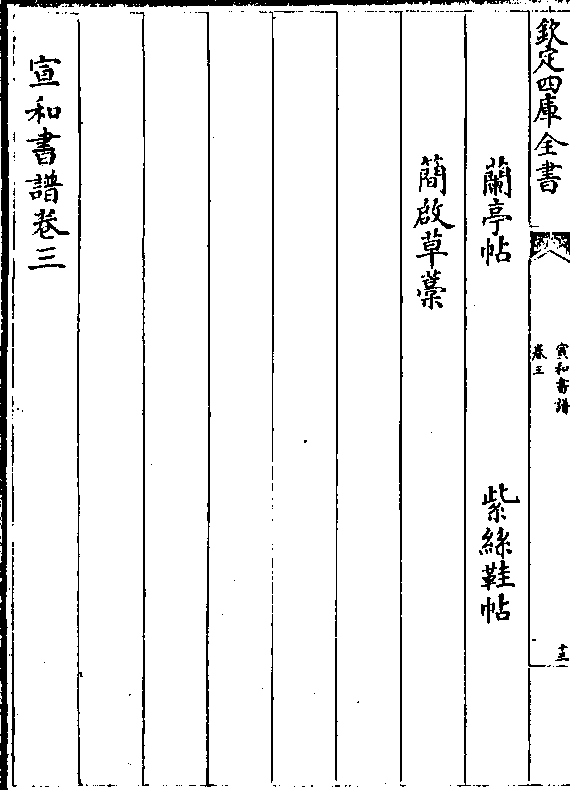 欽定四庫全書
宣和書譜
卷三
十三
蘭亭帖 紫絲鞋帖
簡啟草藁
宣和書譜卷三